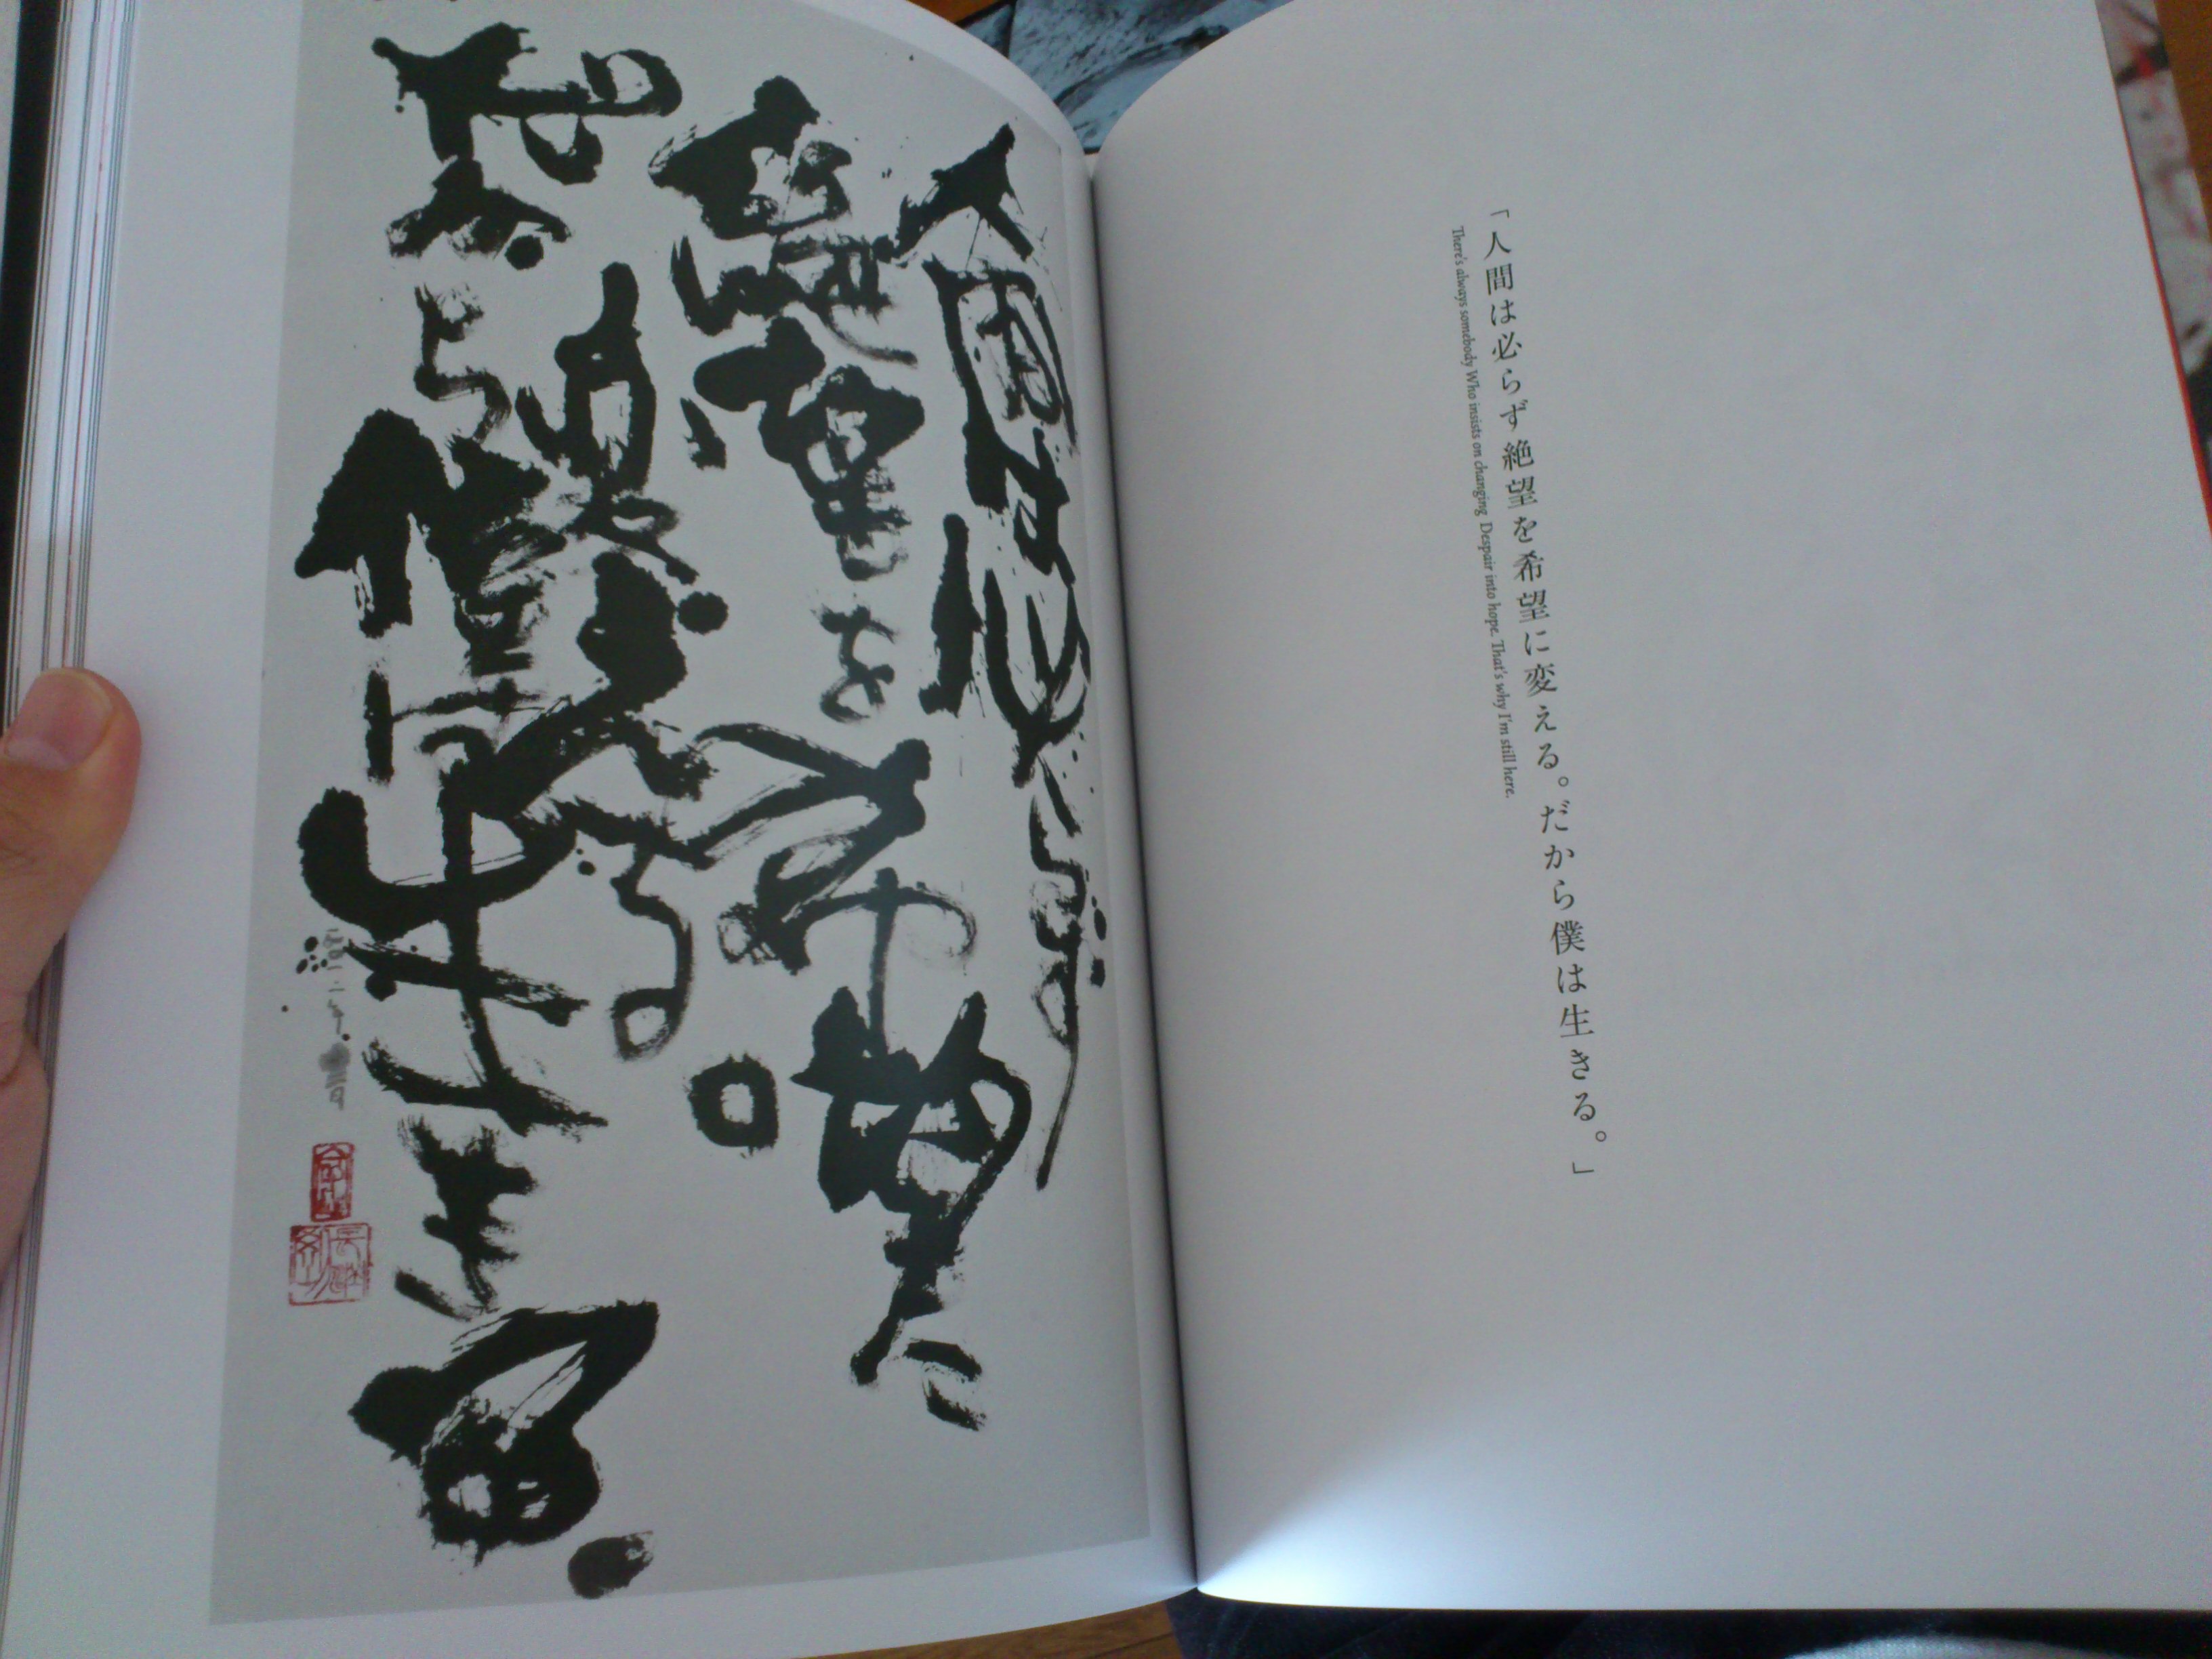 「人間は必らず絶望を希望に変える。だから僕は生きる。」
There's always somebody Who insists on changing Despair into hope. That's why I'm still here.
人間は必らず
絶望を希望に
変える。
だから僕は生きる